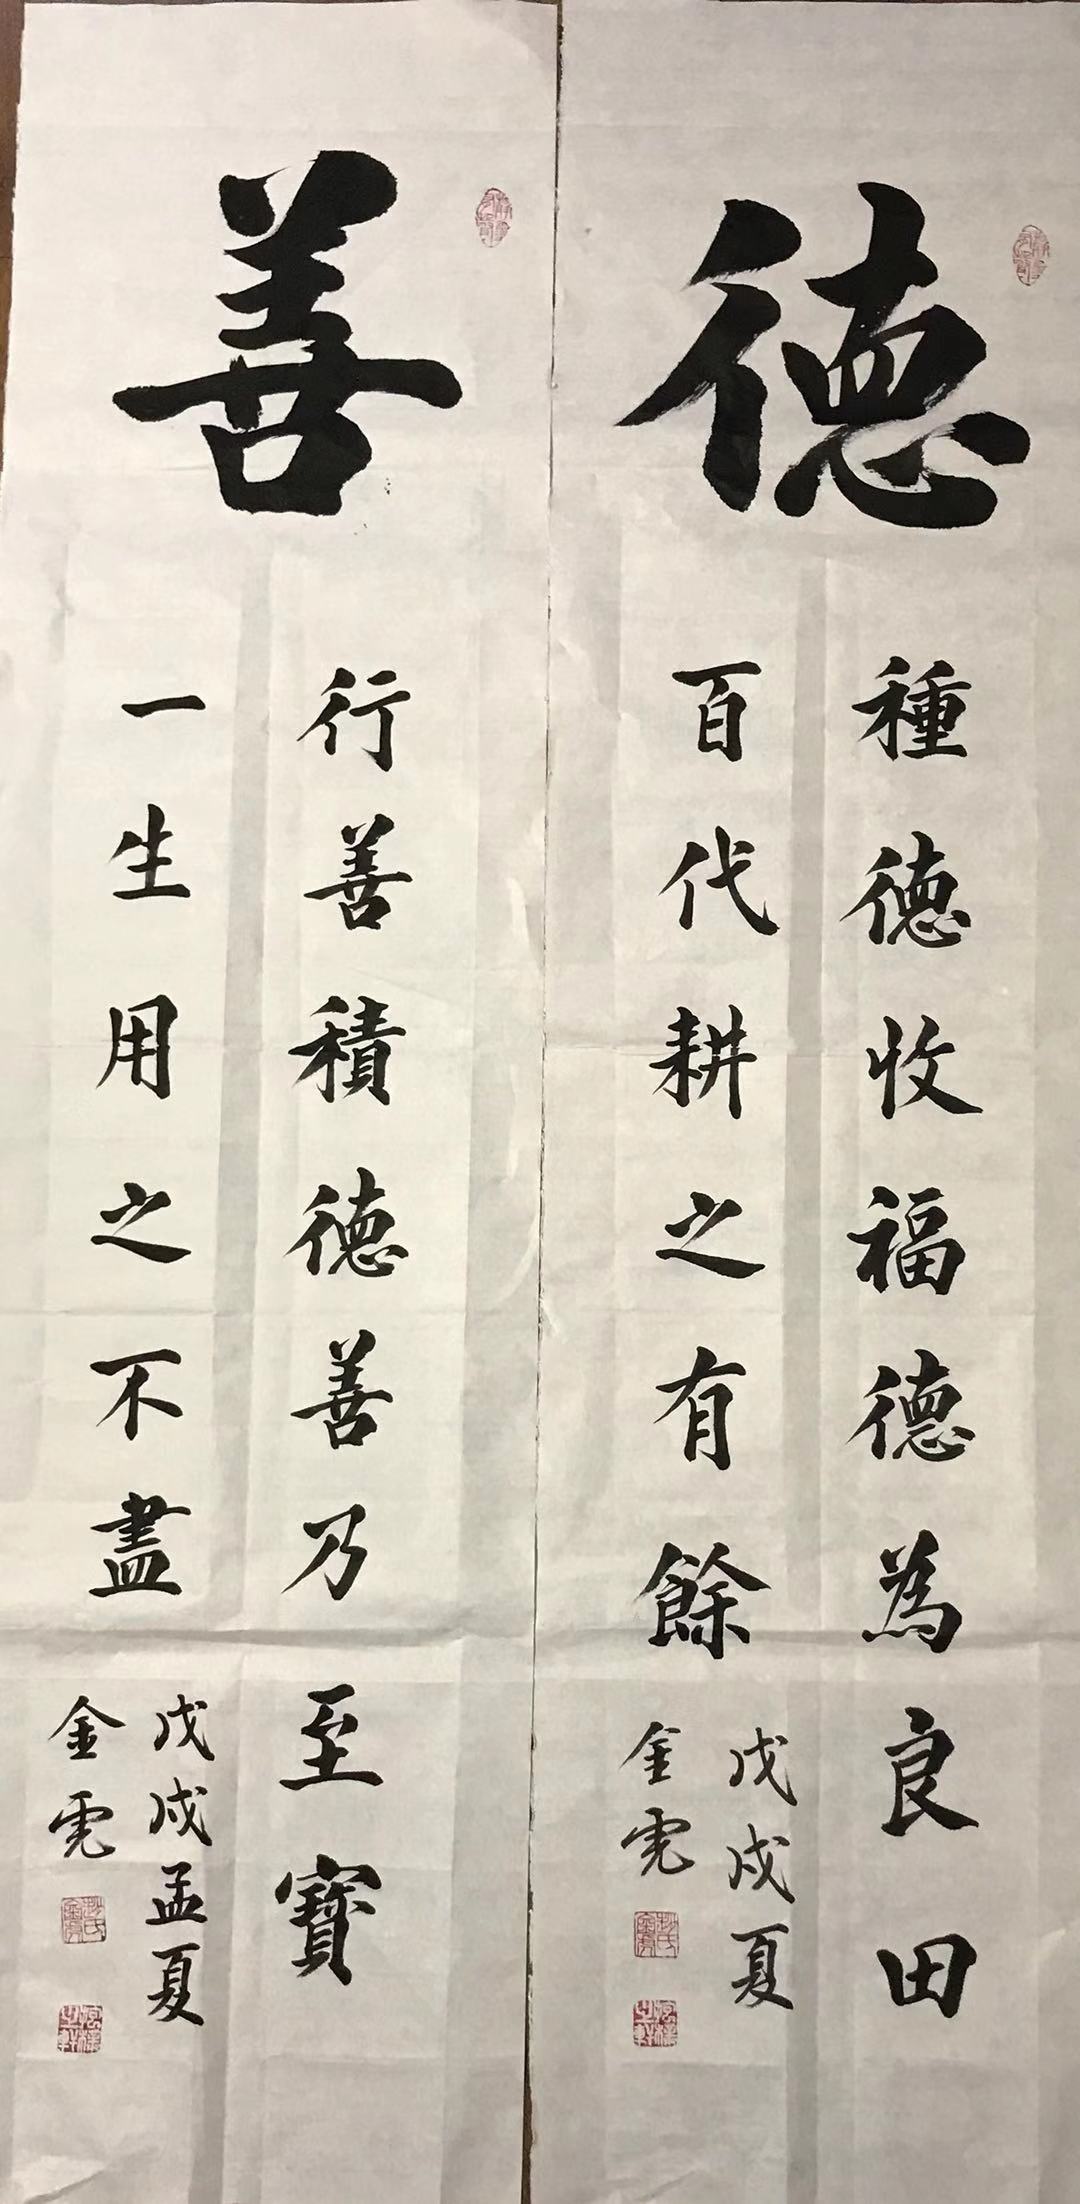 德
種德收福德為良田
百代耕之有餘
戊戌夏
金霓
善
行善積德善乃至寶
一生用之不盡
戊戌孟夏
金霓